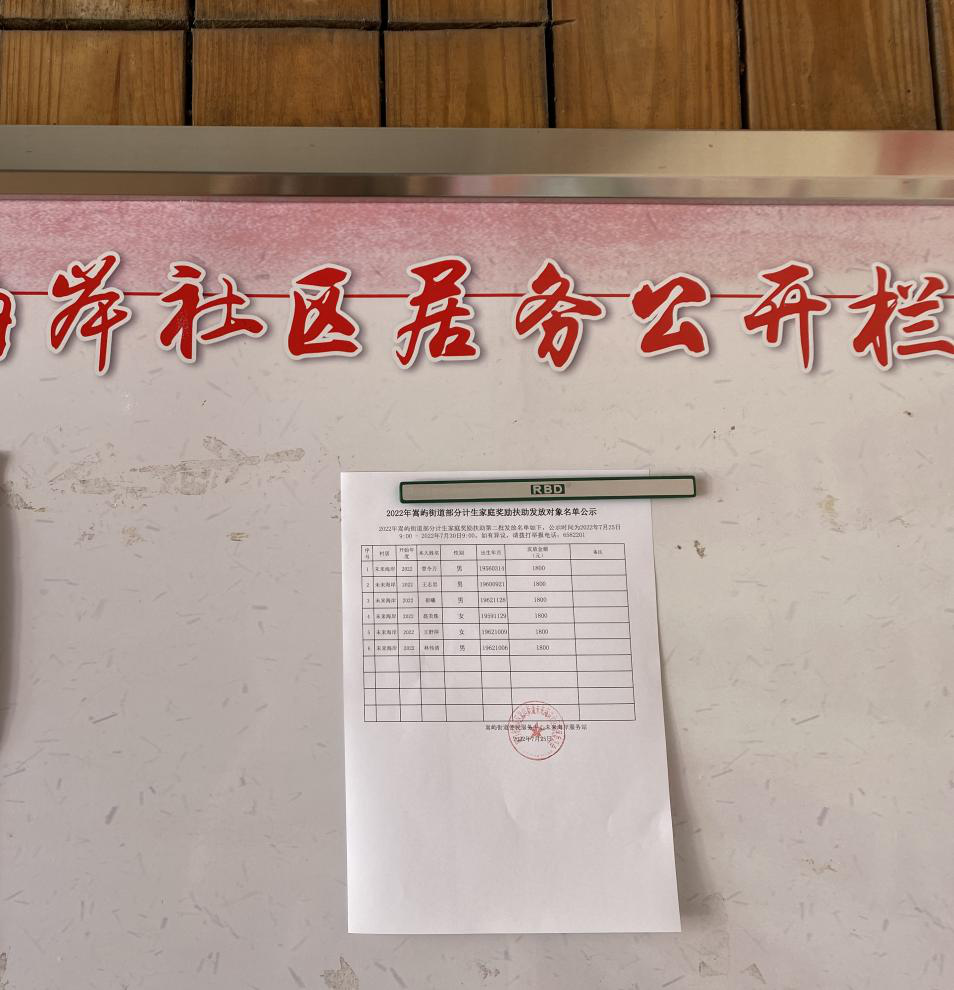 岸社区居务公开栏
RBD
2022年嵩屿街道部分计生家庭奖励扶助发放对象名单公示
2022年嵩屿街道部分计生家庭奖励扶助第二批发放名单如下，公示时间为2022年7月25日
9:00 - 2022年7月30日9:00。如有异议，请拨打举报电话：6582201
序号 村居 开始年度 本人姓名 性别 出生年月 发放金额（元） 备注
1 未来海岸 2022 男 19560314 1800
2 未来海岸 2022 王志忠 男 19600921 1800
3 未来海岸 2022 男 19621128 1800
4 未来海岸 2022 女 19591129 1800
5 未来海岸 2022 王野萍 女 19621009 1800
6 未来海岸 2022 男 19621006 1800
嵩屿街道便民服务中心未来海岸服务站
2022年7月25日